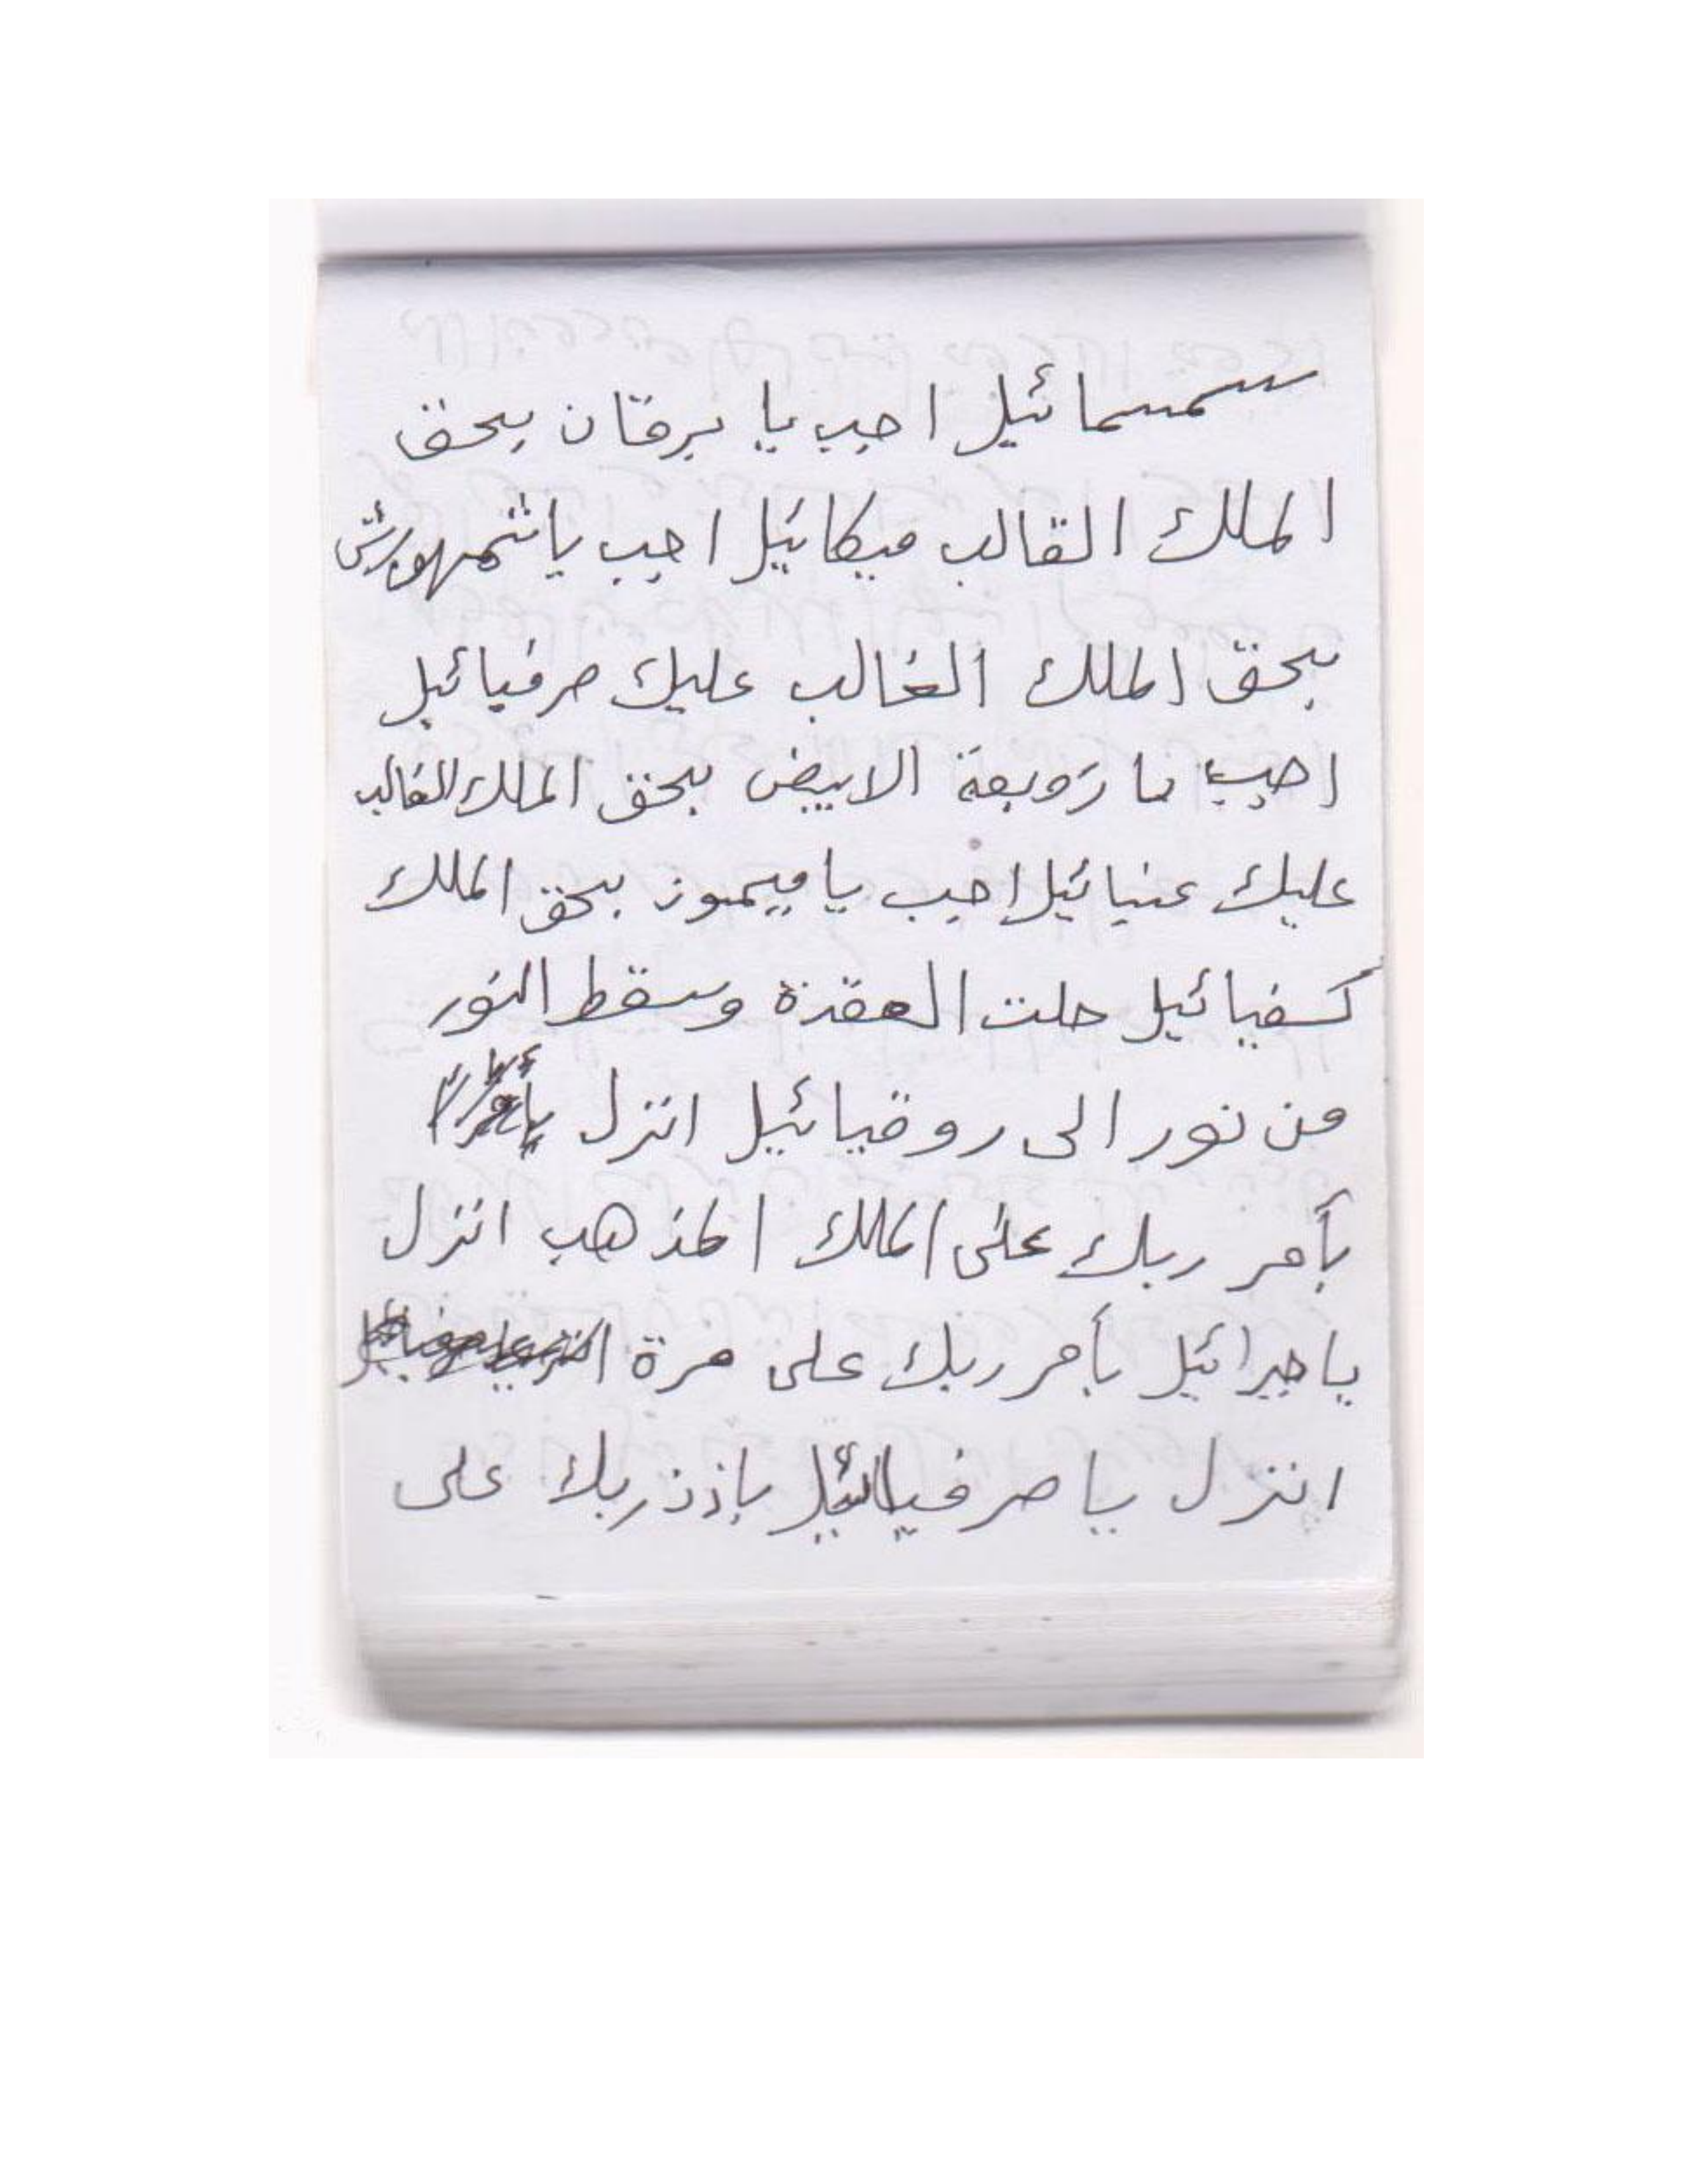 سمسمائيل اجب يا برقان بحق
الملك القالب ميكائيل اجب يا شمهورش
بحق الملك الغالب عليك صرفيائيل
اجب يا زوبعة الابيض بحق الملك الغالب
عليك عنيائيل اجب يا ميمون بحق الملك
كسفيائيل حلت العقدة وسقط النور
من نور الى روقيائيل انزل
بأمر ربك على الملك المذهب انزل
يا جبرائيل بأمر ربك على مرة
انزل يا صرفيائيل بإذن ربك على